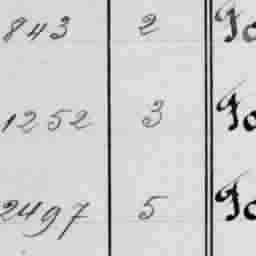 843 2
1252 3
2497 5